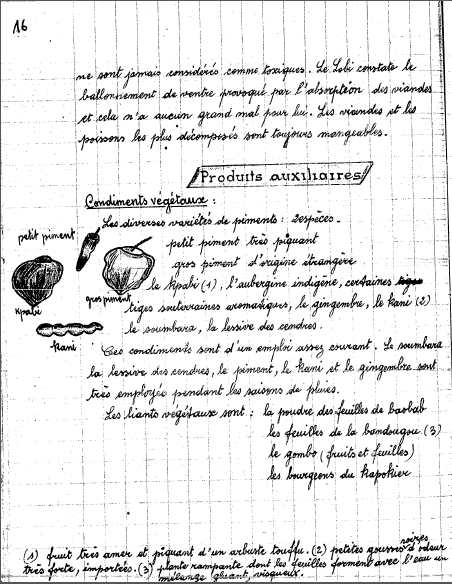 16
ne sont jamais considérés comme toxiques. Le Lobi constate le
ballonnement de ventre provoqué par l'absorption des viandes
et cela n'a aucun grand mal pour lui. Les viandes et les
poissons les plus décomposés sont toujours mangeables.
Produits auxiliaires
Condiments végétaux :
Les diverses variétés de piments : 2 espèces.
petit piment très piquant
gros piment d'origine étrangère
le kpabi (1), l'aubergine indigène, certaines
tiges souterraines aromatiques, le gingembre, le kani (2)
le soumbara, la lessive des cendres.
petit piment
kpabi
gros piment
kani
Ces condiments sont d'un emploi assez courant. Le soumbara
la lessive des cendres, le piment, le kani et le gingembre sont
très employés pendant les saisons de pluies.
Les liants végétaux sont : la poudre des feuilles de baobab
les feuilles de la bondougou (3)
le gombo (fruits et feuilles)
les bourgeons du kapokier
(1) fruit très amer et piquant d'un arbuste touffu. (2) petites gousses noires d'odeur
très forte, importées. (3) plante rampante dont les feuilles forment avec l'eau un
mélange gluant, visqueux.